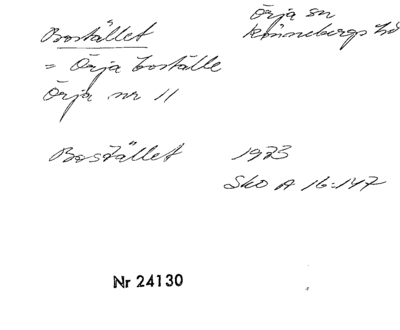 Bostället
= Örja boställe
Örja nr 11
Örja sn
Rönnebergs hd
Bostället 1973
Sko A 16:147
Nr 24130